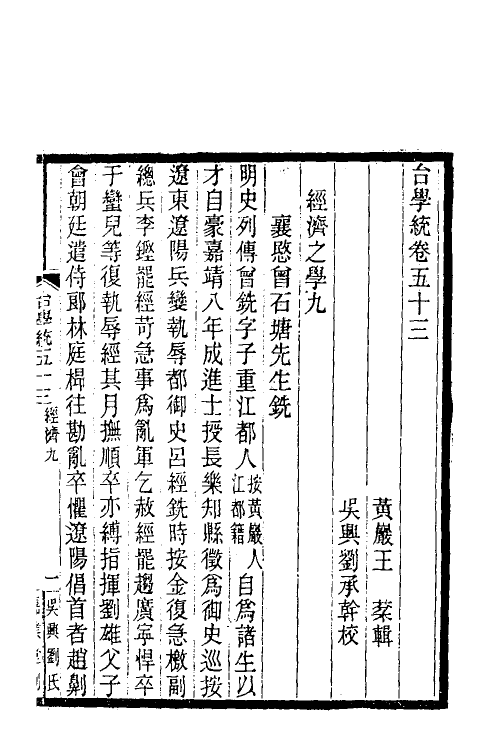 台學統卷五十三
黃巖王棻輯
吳興劉承幹校
經濟之學九
襄愍曾石塘先生銑
明史列傳曾銑字子重江都人按黃巖人江都籍自爲諸生以
才自豪嘉靖八年成進士授長樂知縣徵爲御史巡按
遼東遼陽兵變執辱都御史呂經銑時按金復急檄副
總兵李鑑罷經苛急事爲亂軍乞赦經罷趨廣寧悍卒
于蠻兒等復執辱經其月撫順卒亦縛指揮劉雄父子
會朝廷遣侍郎林庭㭿往勘亂卒懼遼陽倡首者趙㓻
台學統五十三 經濟九
一 吳興劉氏